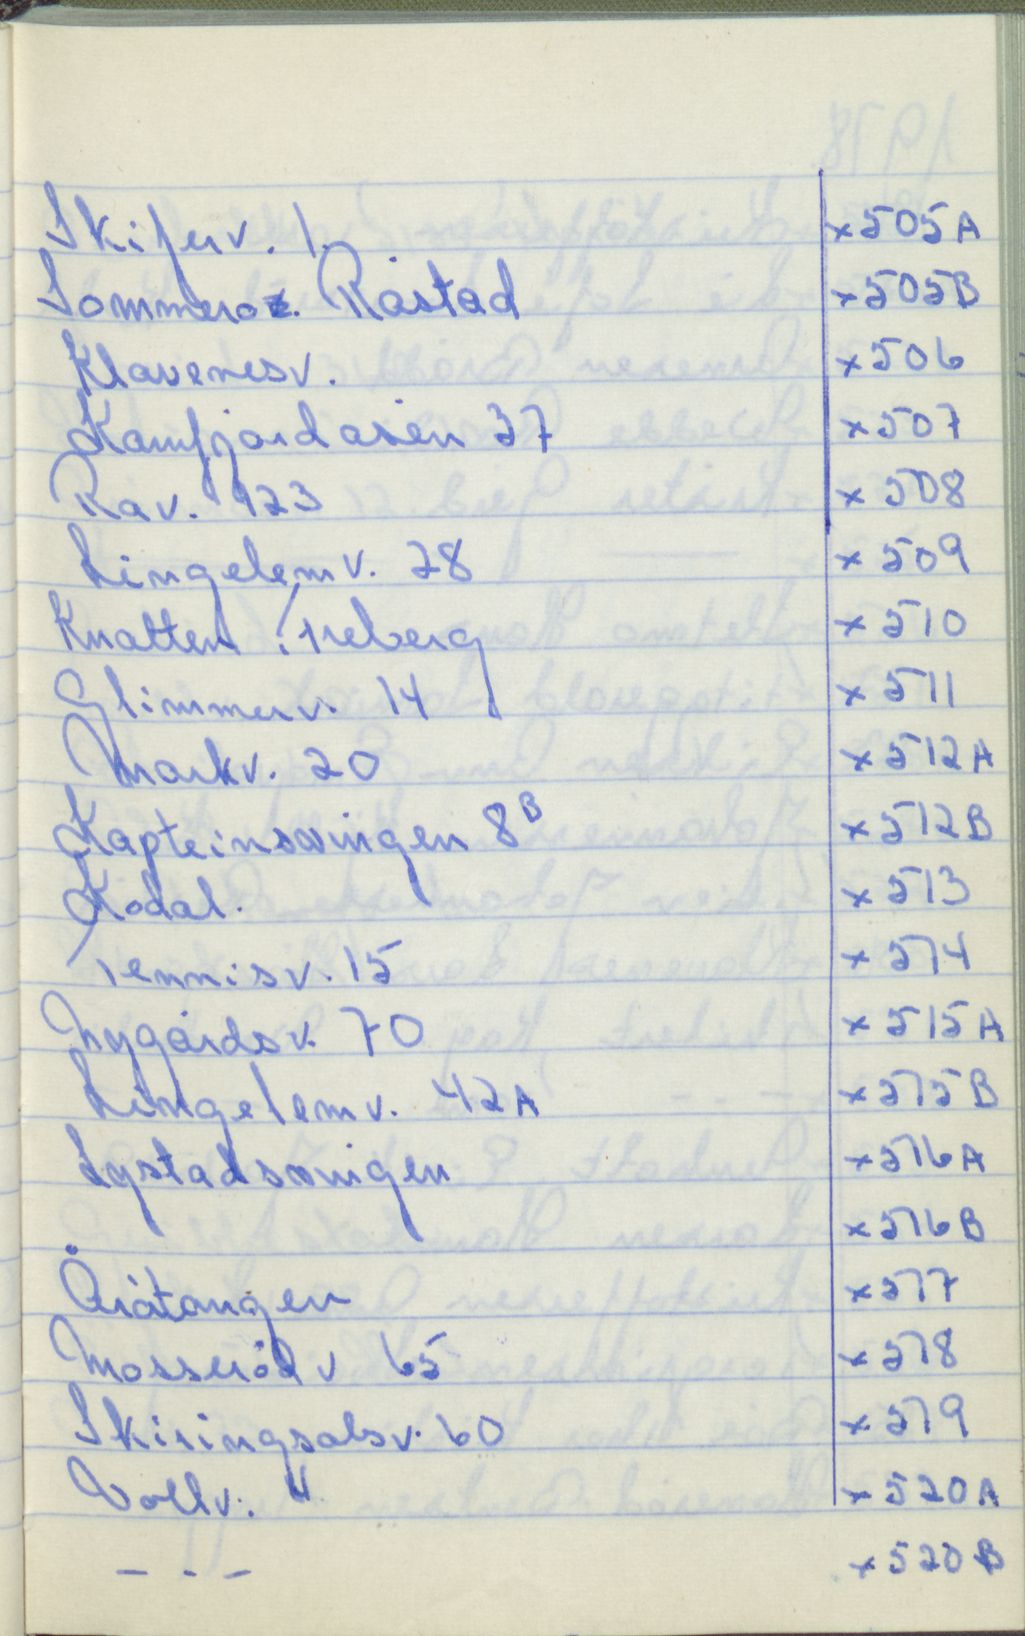 Skiferv. 1. x505A
Sommero. Råstad x505B
Klavenesv. x506
Kamfjordåsen 37 x507
Rav. 123 x508
Lingelemv. 28 x509
Knatten Treberg x510
Glimmerv. 14 x511
Markv. 20 x512A
Kapteinsvingen 8B x512B
Kodal. x513
Tennisv. 15 x514
Nygårdsv. 70 x515A
Lingelemv. 42A x515B
Lystadsvingen x516A
x516B
Åråtangen x517
Mosserødv 65 x518
Skiringsalsv. 60 x519
Vollv. 4. x520A
- - - x520B